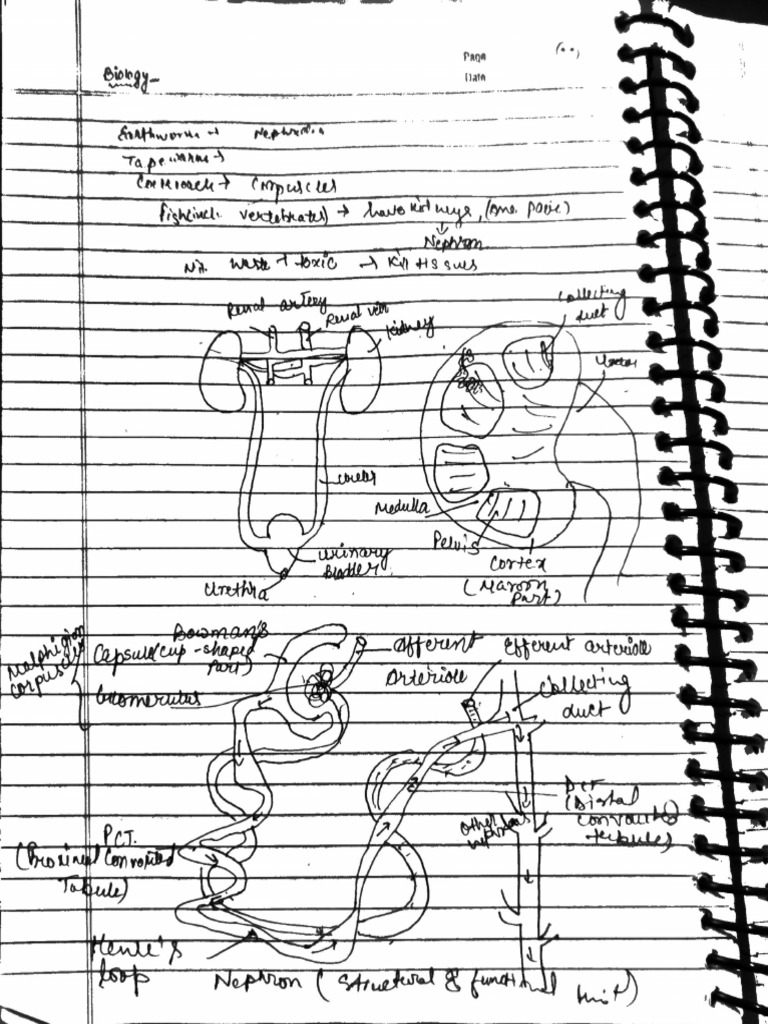 Page
Date
Biology
Earthworm → Nephridia
Tapeworm →
Cockroach → Corpuscles
Fish(incl. vertebrates) → have kidneys, (one pair)
↓
Nephron
Nit. waste → toxic → Kill tissues
Renal artery
Renal vein
Kidney
Collecting duct
Ureter
Medulla
Pelvis
urinary bladder
Cortex
(Maroon part)
Urethra
Malphigion corpuscles
Bowman's
Capsule(cup-shaped part)
Afferent
Arteriole
Efferent arteriole
Glomerulus
Collecting duct
DCT
(Distal convoluted tubule)
Other
PCT.
(Proximal Convoluted Tubule)
Henle's loop
Nephron (Structural & functional Unit)